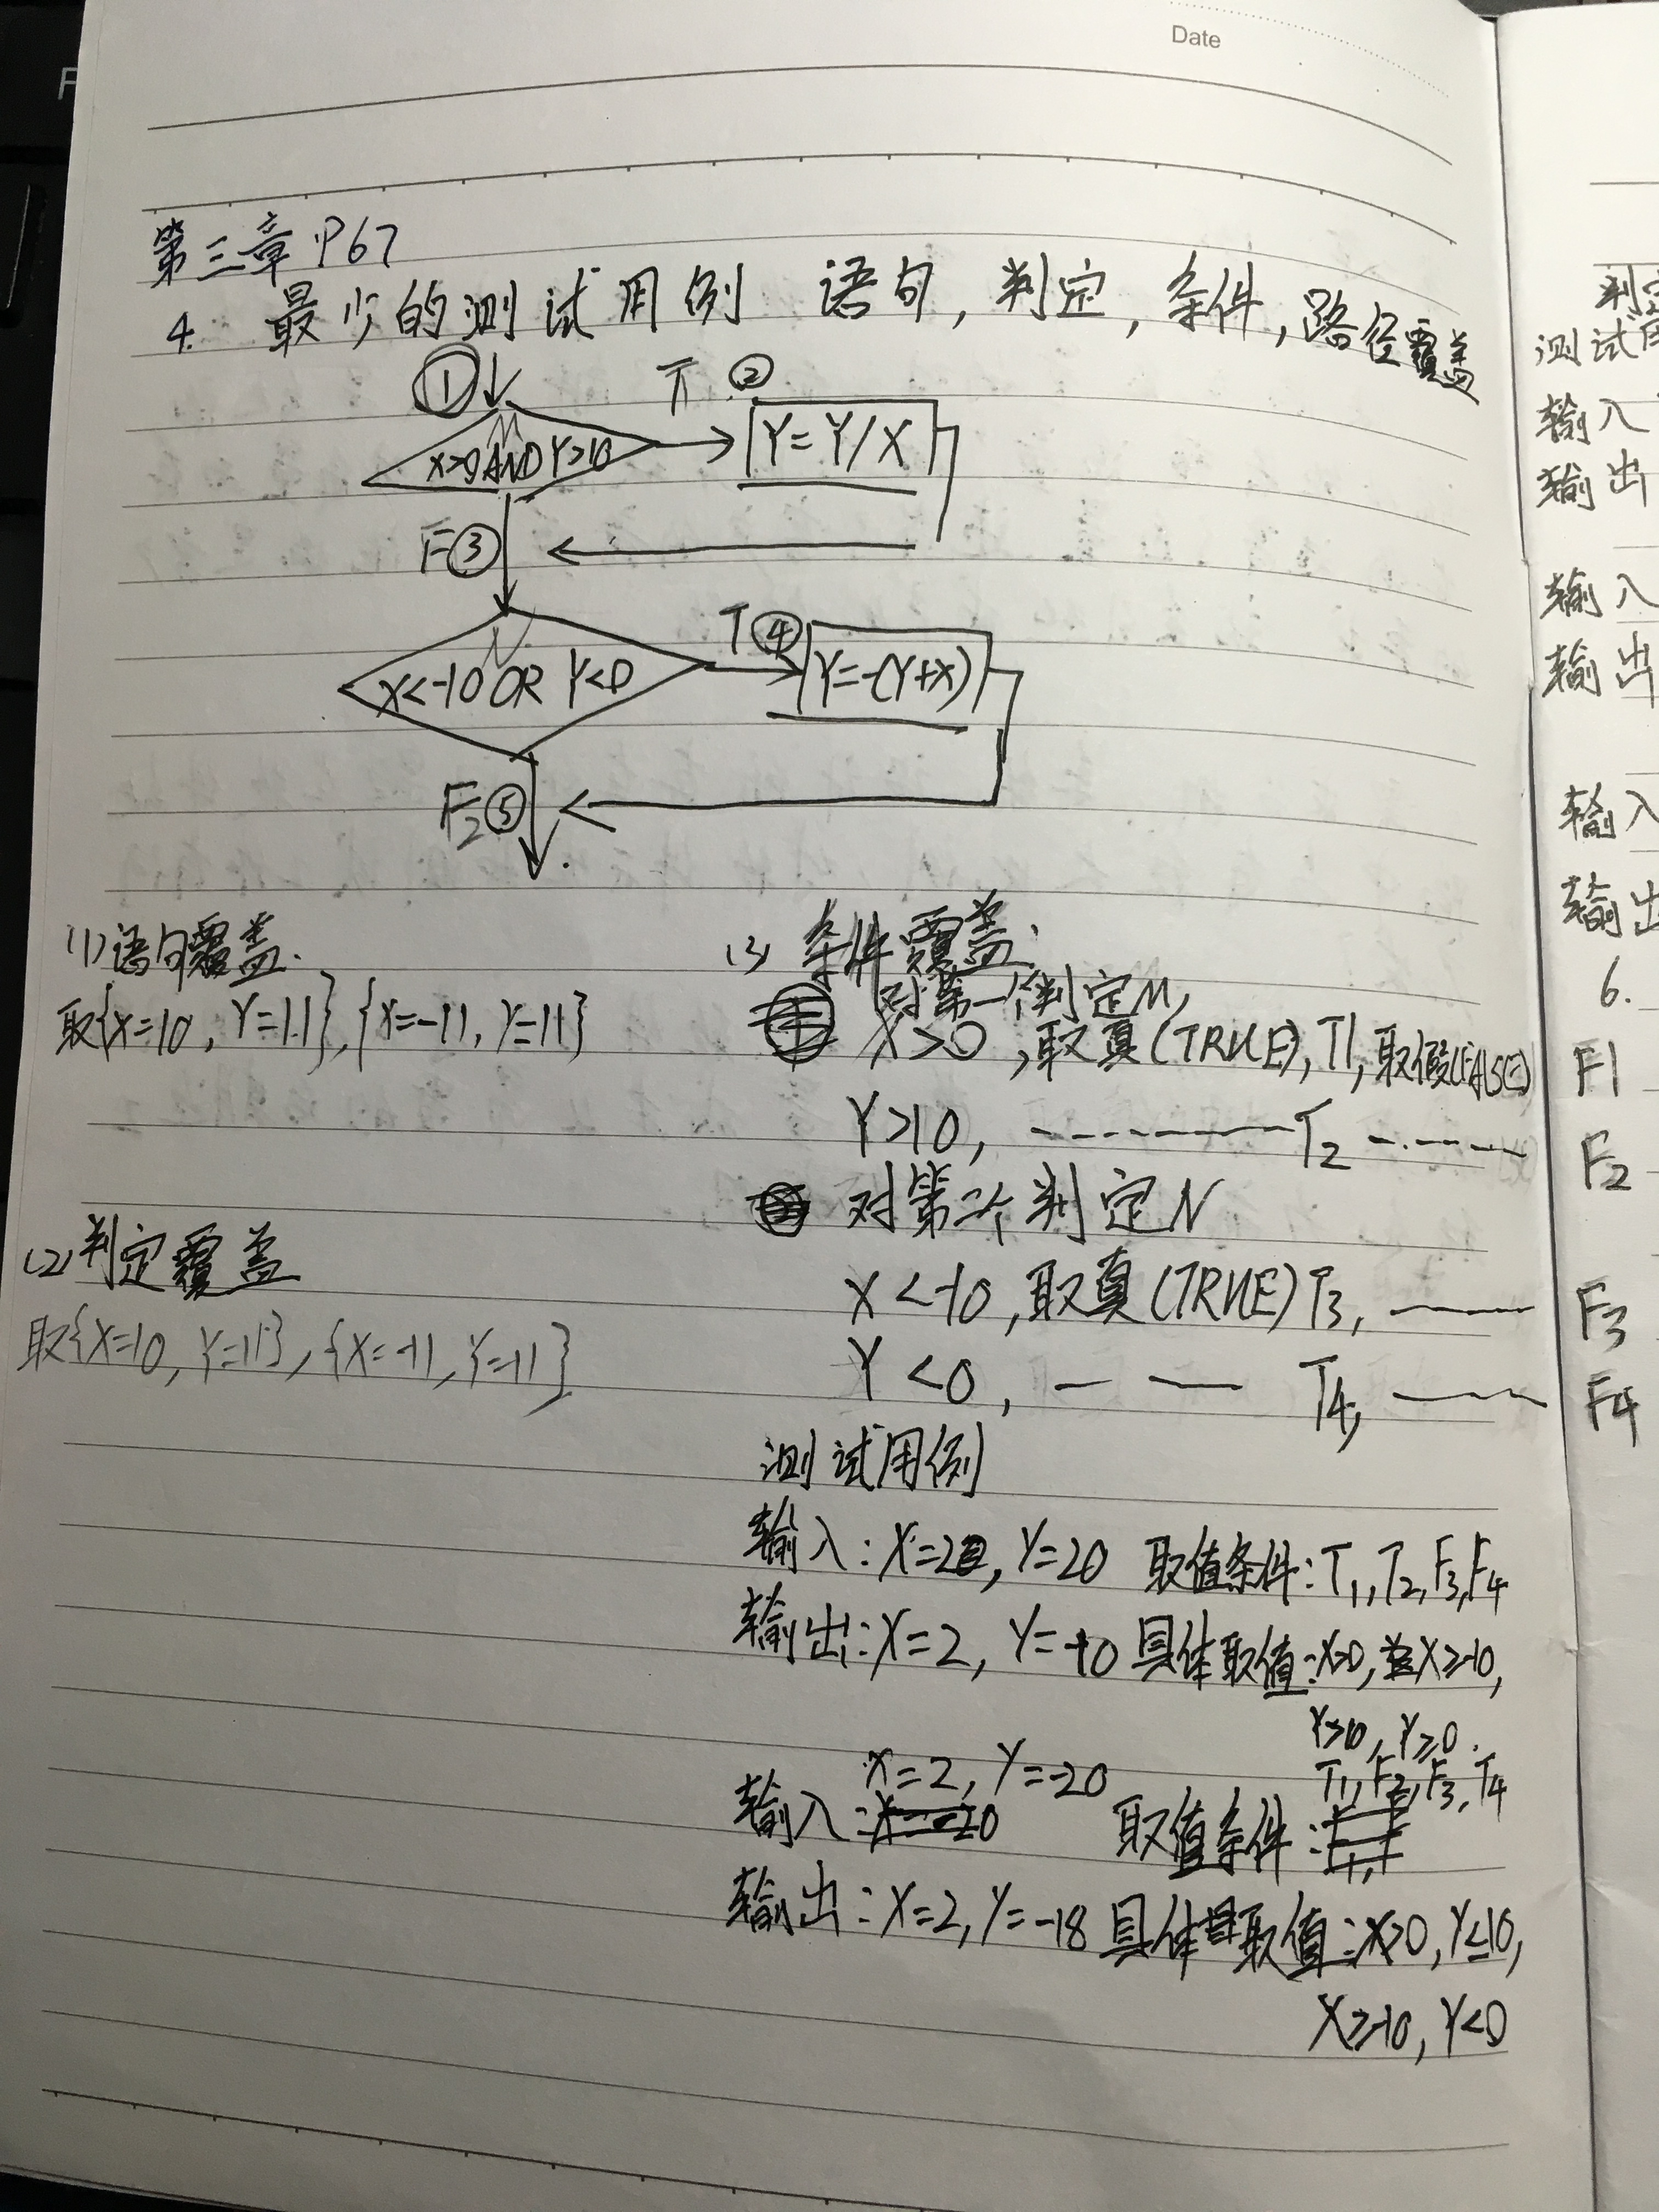 Date
第三章 P67
4. 最少的测试用例 语句,判定,条件,路径覆盖
① T ②
M
X>0 AND Y>10
Y=Y/X
F ③
N
X<-10 OR Y<0
T ④
Y=-(Y+X)
F2 ⑤
(1)语句覆盖.
取{X=10, Y=11},{X=-11, Y=11}
(2)判定覆盖
取{X=10, Y=11},{X=-11, Y=11}
(3) 条件覆盖.
对第一个判定M,
X>0,取真(TRUE),T1,取假(FALSE) F1
Y>10, --------- T2 ------ F2
对第二个判定N
X<-10,取真(TRUE)T3, —— F3
Y<0, — — T4, —— F4
测试用例
输入:X=2, Y=20 取值条件:T1,T2,F3,F4
输出:X=2, Y=10 具体取值:X>0, X≥-10,
Y>10, Y≥0.
输入:X=2, Y=-20 取值条件:T1,F2,F3,T4
输出:X=2,Y=-18 具体取值:X>0,Y≤10,
X≥-10,Y<0
判定
测试用
输入
输出
输入
输出
输入
输出
6.